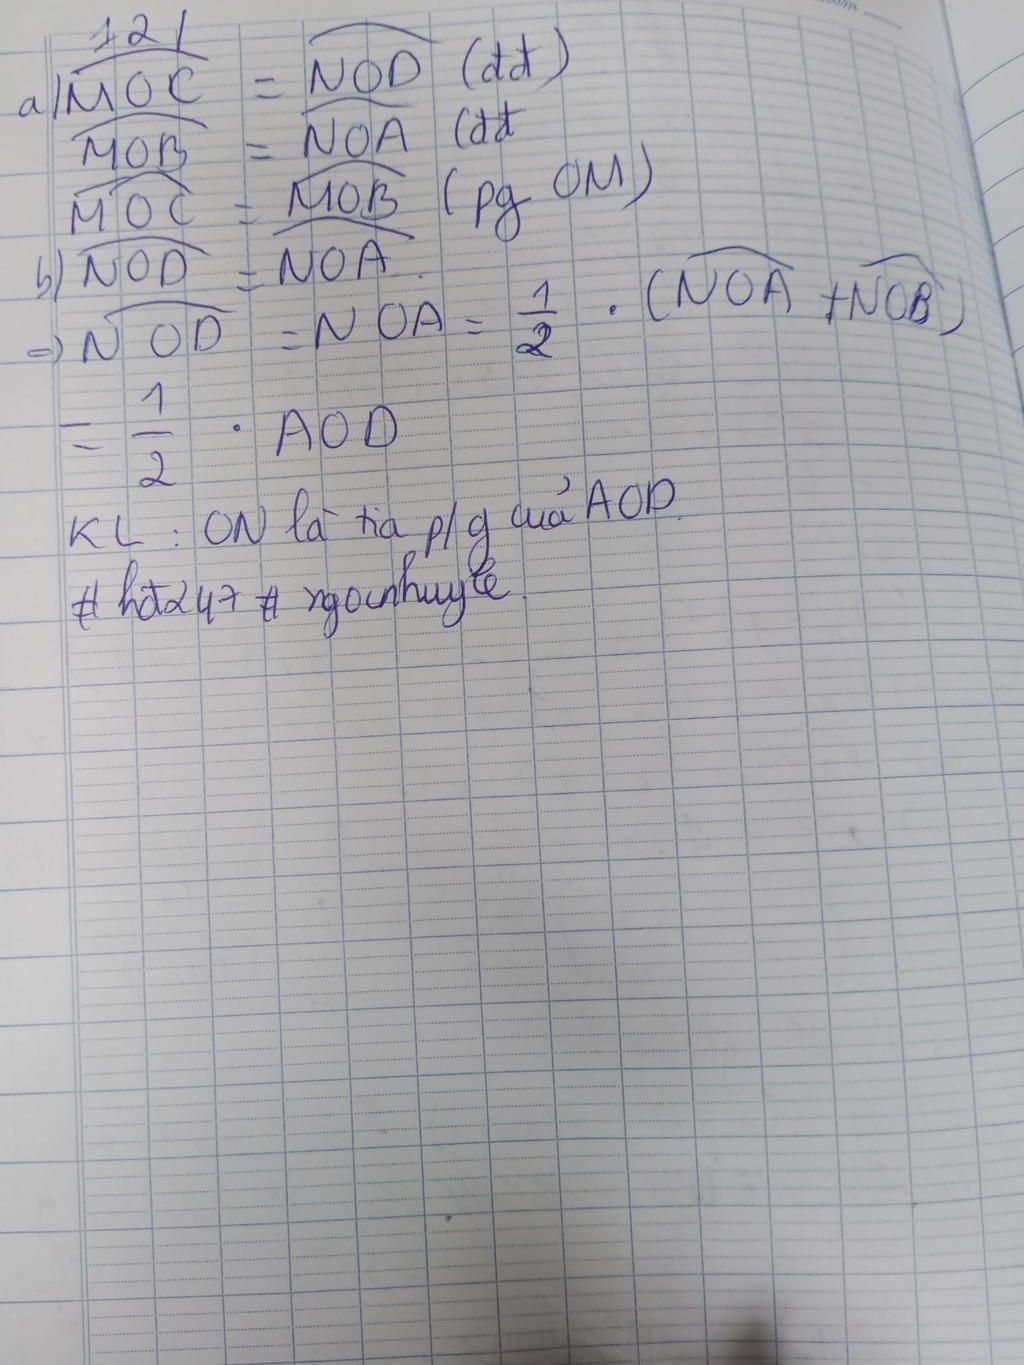 12/
a) MOC = NOD (dd)
MOB = NOA (dd
MOC = MOB (pg OM)
b) NOD = NOA.
=) NOD = NOA = 1/2 . (NOA + NOB)
= 1/2 . AOD
KL : ON là tia p/g cuả AOD
# hđ247 # ngocnhuyle.